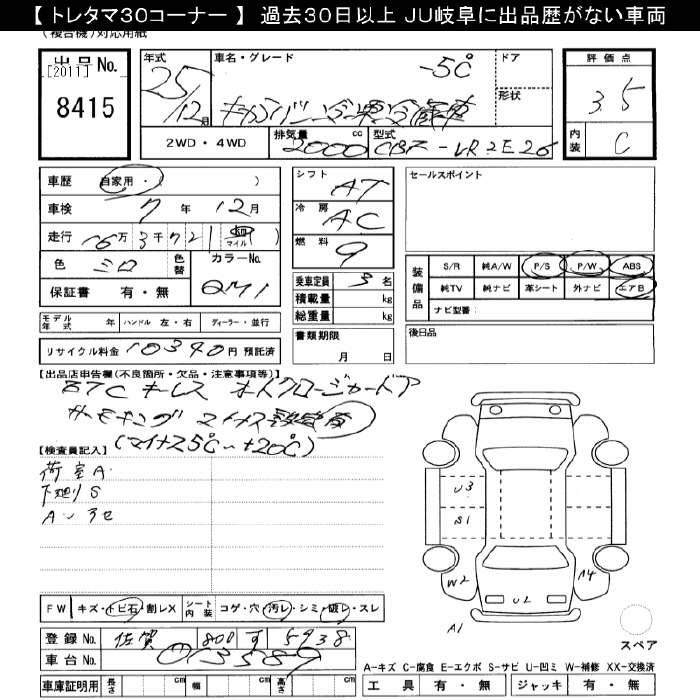 【トレタマ30コーナー】 過去30日以上 JU岐阜に出品歴がない車両
(複合機)対応用紙
出品No.
[2011]
8415
年式
25/12月
車名・グレード
-5℃
ドア
形状
評価点
3.5
内装
C
2WD・4WD
排気量
2000
cc
型式
CBF-VR2E26
車歴
自家用・( )
車検
7年12月
走行
16万3千721
マイル
色
シロ
色替
カラーNo.
QM1
保証書 有・無
シフト
AT
冷房
AC
燃料
9
乗車定員
3名
積載量
kg
総重量
kg
書類期限
月 日
セールスポイント
装備品
S/R 純A/W P/S P/W ABS
純TV 純ナビ 革シート 外ナビ エアB
ナビ型番:
後日品
モデル年式 年 ハンドル 左・右 ディーラー・並行
リサイクル料金 10390円 預託済
【出品店申告欄(不良箇所・欠品・注意事項等)】
ETC キーレス
(マイナス5℃~+20℃)
【検査員記入】
荷室A
下廻りS
U3
S1
W2
A4
U2
A1
スペア
FW キズ・トビ石・割レX シート内装 コゲ・穴・汚レ・シミ・破レ・スレ
登録No. 佐賀 800 す 5938
車台No. 013589
車庫証明用 長さ cm 幅 cm 高さ cm
A-キズ C-腐食 E-エクボ S-サビ U-凹ミ W-補修 XX-交換済
工具 有・無 ジャッキ 有・無